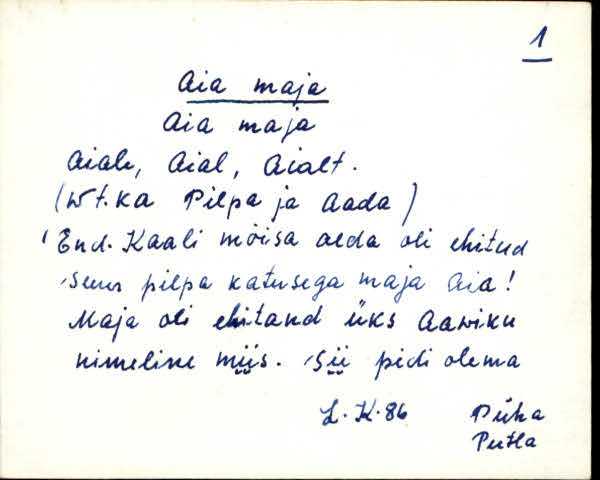 1
Aia maja
Aia maja
Aiale, Aial, Aialt.
(Wt. ka Pilpa ja Aada)
End. Kaali mõisa aeda oli ehitud
suur pilpa katusega maja Aia!
Maja oli ehitand üks Aawiku
nimeline miis. Sii pidi olema
L. K. 86 Püha
Putla